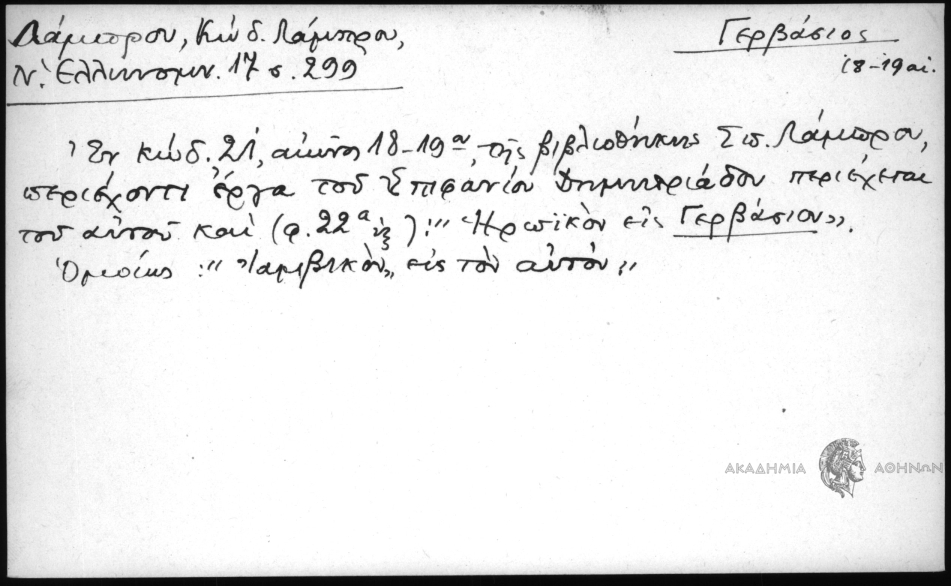 Λάμπρου, Κώδ. Λάμπρου,
Ν. Ἑλληνομν. 17 σ. 299
Γερβάσιος
18-19 αἰ.
Ἐν κώδ. 21, αἰῶνος 18-19ου, τῆς βιβλιοθήκης Σπ. Λάμπρου,
περιέχοντι ἔργα τοῦ Ἐπιφανίου Δημητριάδου περιέχεται
τοῦ αὐτοῦ καὶ (φ. 22α ἑξ): "Ἡρωϊκὸν εἰς Γερβάσιον".
Ὁμοίως: "Ἰαμβικὸν, εἰς τὸν αὐτόν"
ΑΚΑΔΗΜΙΑ ΑΘΗΝΩΝ